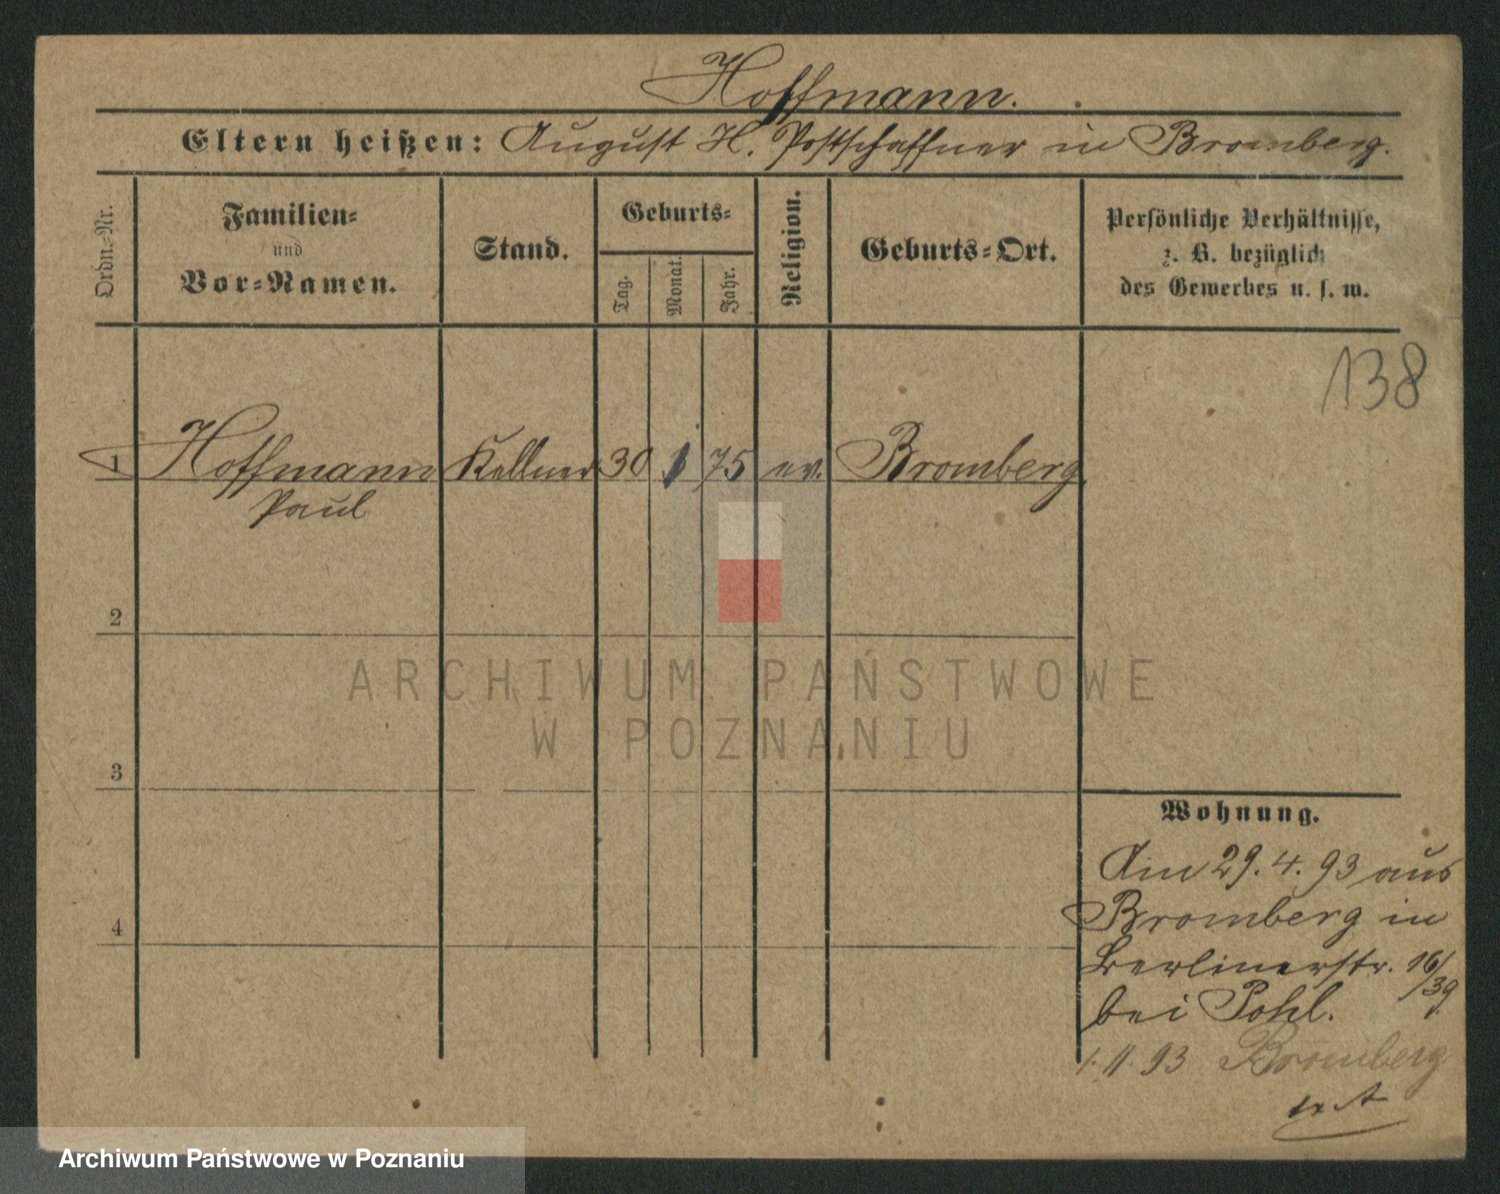 Hoffmann.
Eltern heißen: August H. Postschaffner in Bromberg.
Ordn.-Nr.
Familien-
und
Vor-Namen.
Stand.
Geburts-
Tag.
Monat.
Jahr.
Religion.
Geburts-Ort.
Persönliche Verhältnisse,
z. B. bezüglich
des Gewerbes u. s. w.
138
1 Hoffmann Kellner 30 1 75 ev. Bromberg
Paul
2
ARCHIWUM PAŃSTWOWE
W POZNANIU
3
Wohnung.
Am 29.4.93 aus
4
Bromberg in
Berlinerstr. 16/39
bei Pohl.
1.11.93 Bromberg
Archiwum Państwowe w Poznaniu